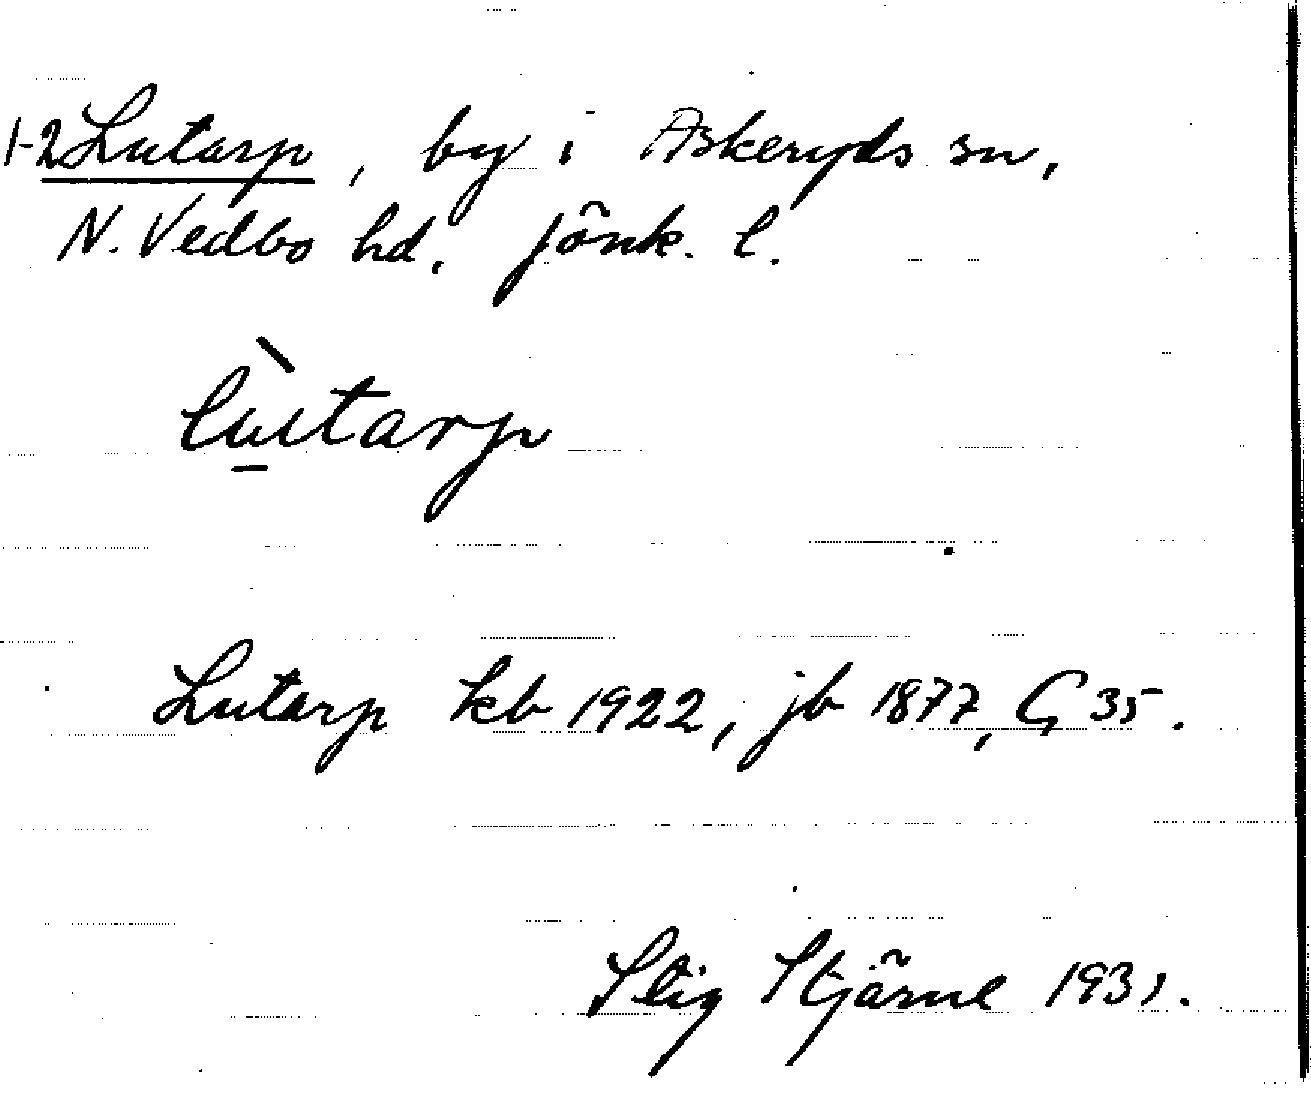 1-2 Lutarp, by i Askeryds sn,
N. Vedbo hd. Jönk. l.
lùtarp
Lutarp kb 1922, jb 1877, G 35.
Stig Stjärne 1931.